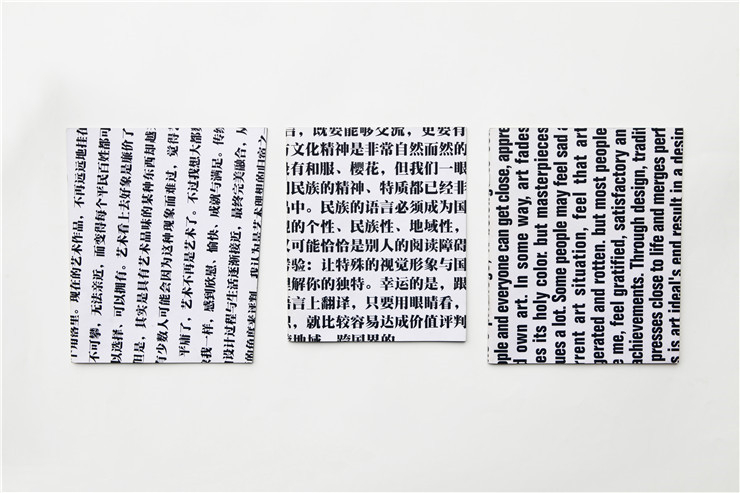 落里。现在的艺术作品，不再远远地挂在
不可攀，无法亲近，而变得每个平民百姓都可
以选择、可以拥有。艺术看上去好象是廉价了
但是，其实是具有艺术品味的某种东西却越
有少数人可能会因为这种现象而难过，觉得
平庸了，艺术不再是艺术了。不过我想大都
我一样，感到欣慰、愉快、成就与满足。传
设计过程与生活逐渐接近，最终完美融合，
的角度来评判，我认为是艺术理想的归宿之
言，既要能够交流，更要有
文化精神是非常自然而然的
没有和服、樱花，但我们一眼
民族的精神、特质都已经非
中。民族的语言必须成为国
的个性、民族性、地域性，
又可能恰恰是别人的阅读障碍
考验：让特殊的视觉形象与国
理解你的独特。幸运的是，跟
语言上翻译，只要用眼睛看，
，就比较容易达成价值评判
跨地域、跨国界的
ople and everyone can get close, appre
d own art. In some way, art fades
es its holy color. but masterpieces
ues a lot. Some people may feel sad
rrent art situation, feel that art
gerated and rotten. but most people
e me, feel gratified, satisfactory an
achievements. Through design, tradit
presses close to life and merges perf
s is art ideal's end result in a design